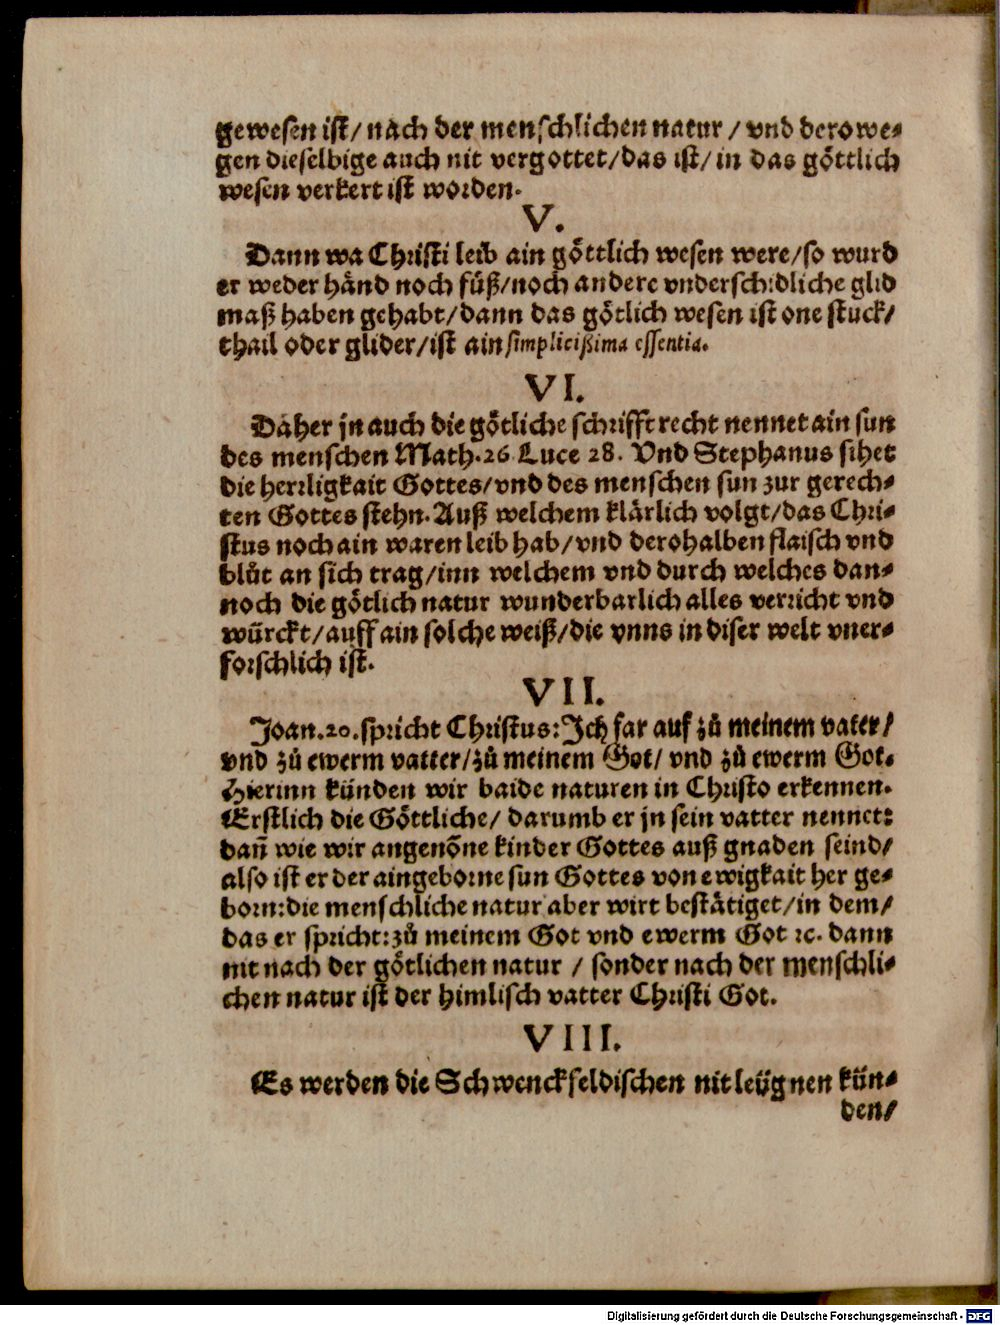 gewesen ist / nach der menschlichen natur / vnd derowe⸗
gen dieselbige auch nit vergottet/das ist/in das göttlich
wesen verkert ist worden.
V.
Dann wa Christi leib ain göttlich wesen were/so wurd
er weder händ noch füß/noch andere vnderschidliche glid
maß haben gehabt/dann das götlich wesen ist one stuck/
thail oder glider/ist ain simplicißima essentia.
VI.
Daher jn auch die götliche schrifft recht nennet ain sun
des menschen Math.26 Luce 28. Vnd Stephanus sihet
die herrligkait Gottes/vnd des menschen sun zur gerech⸗
ten Gottes stehn. Auß welchem klärlich volgt/das Chri⸗
stus noch ain waren leib hab/vnd derohalben flaisch vnd
blůt an sich trag/inn welchem vnd durch welches dan⸗
noch die götlich natur wunderbarlich alles verricht vnd
würckt/auff ain solche weiß/die vnns in diser welt vner⸗
forschlich ist.
VII.
Joan.20.spricht Christus: Ich far auf zů meinem vater/
vnd zů ewerm vatter/zů meinem Got/ vnd zů ewerm Got.
Hierinn künden wir baide naturen in Christo erkennen.
Erstlich die Göttliche/ darumb er jn sein vatter nennet:
dañ wie wir angenõne kinder Gottes auß gnaden seind/
also ist er der aingeborne sun Gottes von ewigkait her ge⸗
born: die menschliche natur aber wirt bestätiget/in dem/
das er spricht: zů meinem Got vnd ewerm Got ꝛc. dann
nit nach der götlichen natur / sonder nach der menschli⸗
chen natur ist der himlisch vatter Christi Got.
VIII.
Es werden die Schwenckfeldischen nit leügnen kün⸗
den/
Digitalisierung gefördert durch die Deutsche Forschungsgemeinschaft - DFG